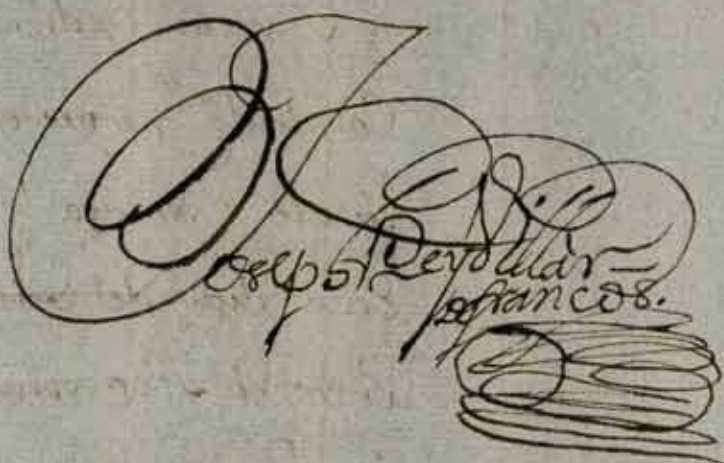 Joseph De Villar=
defrancos.